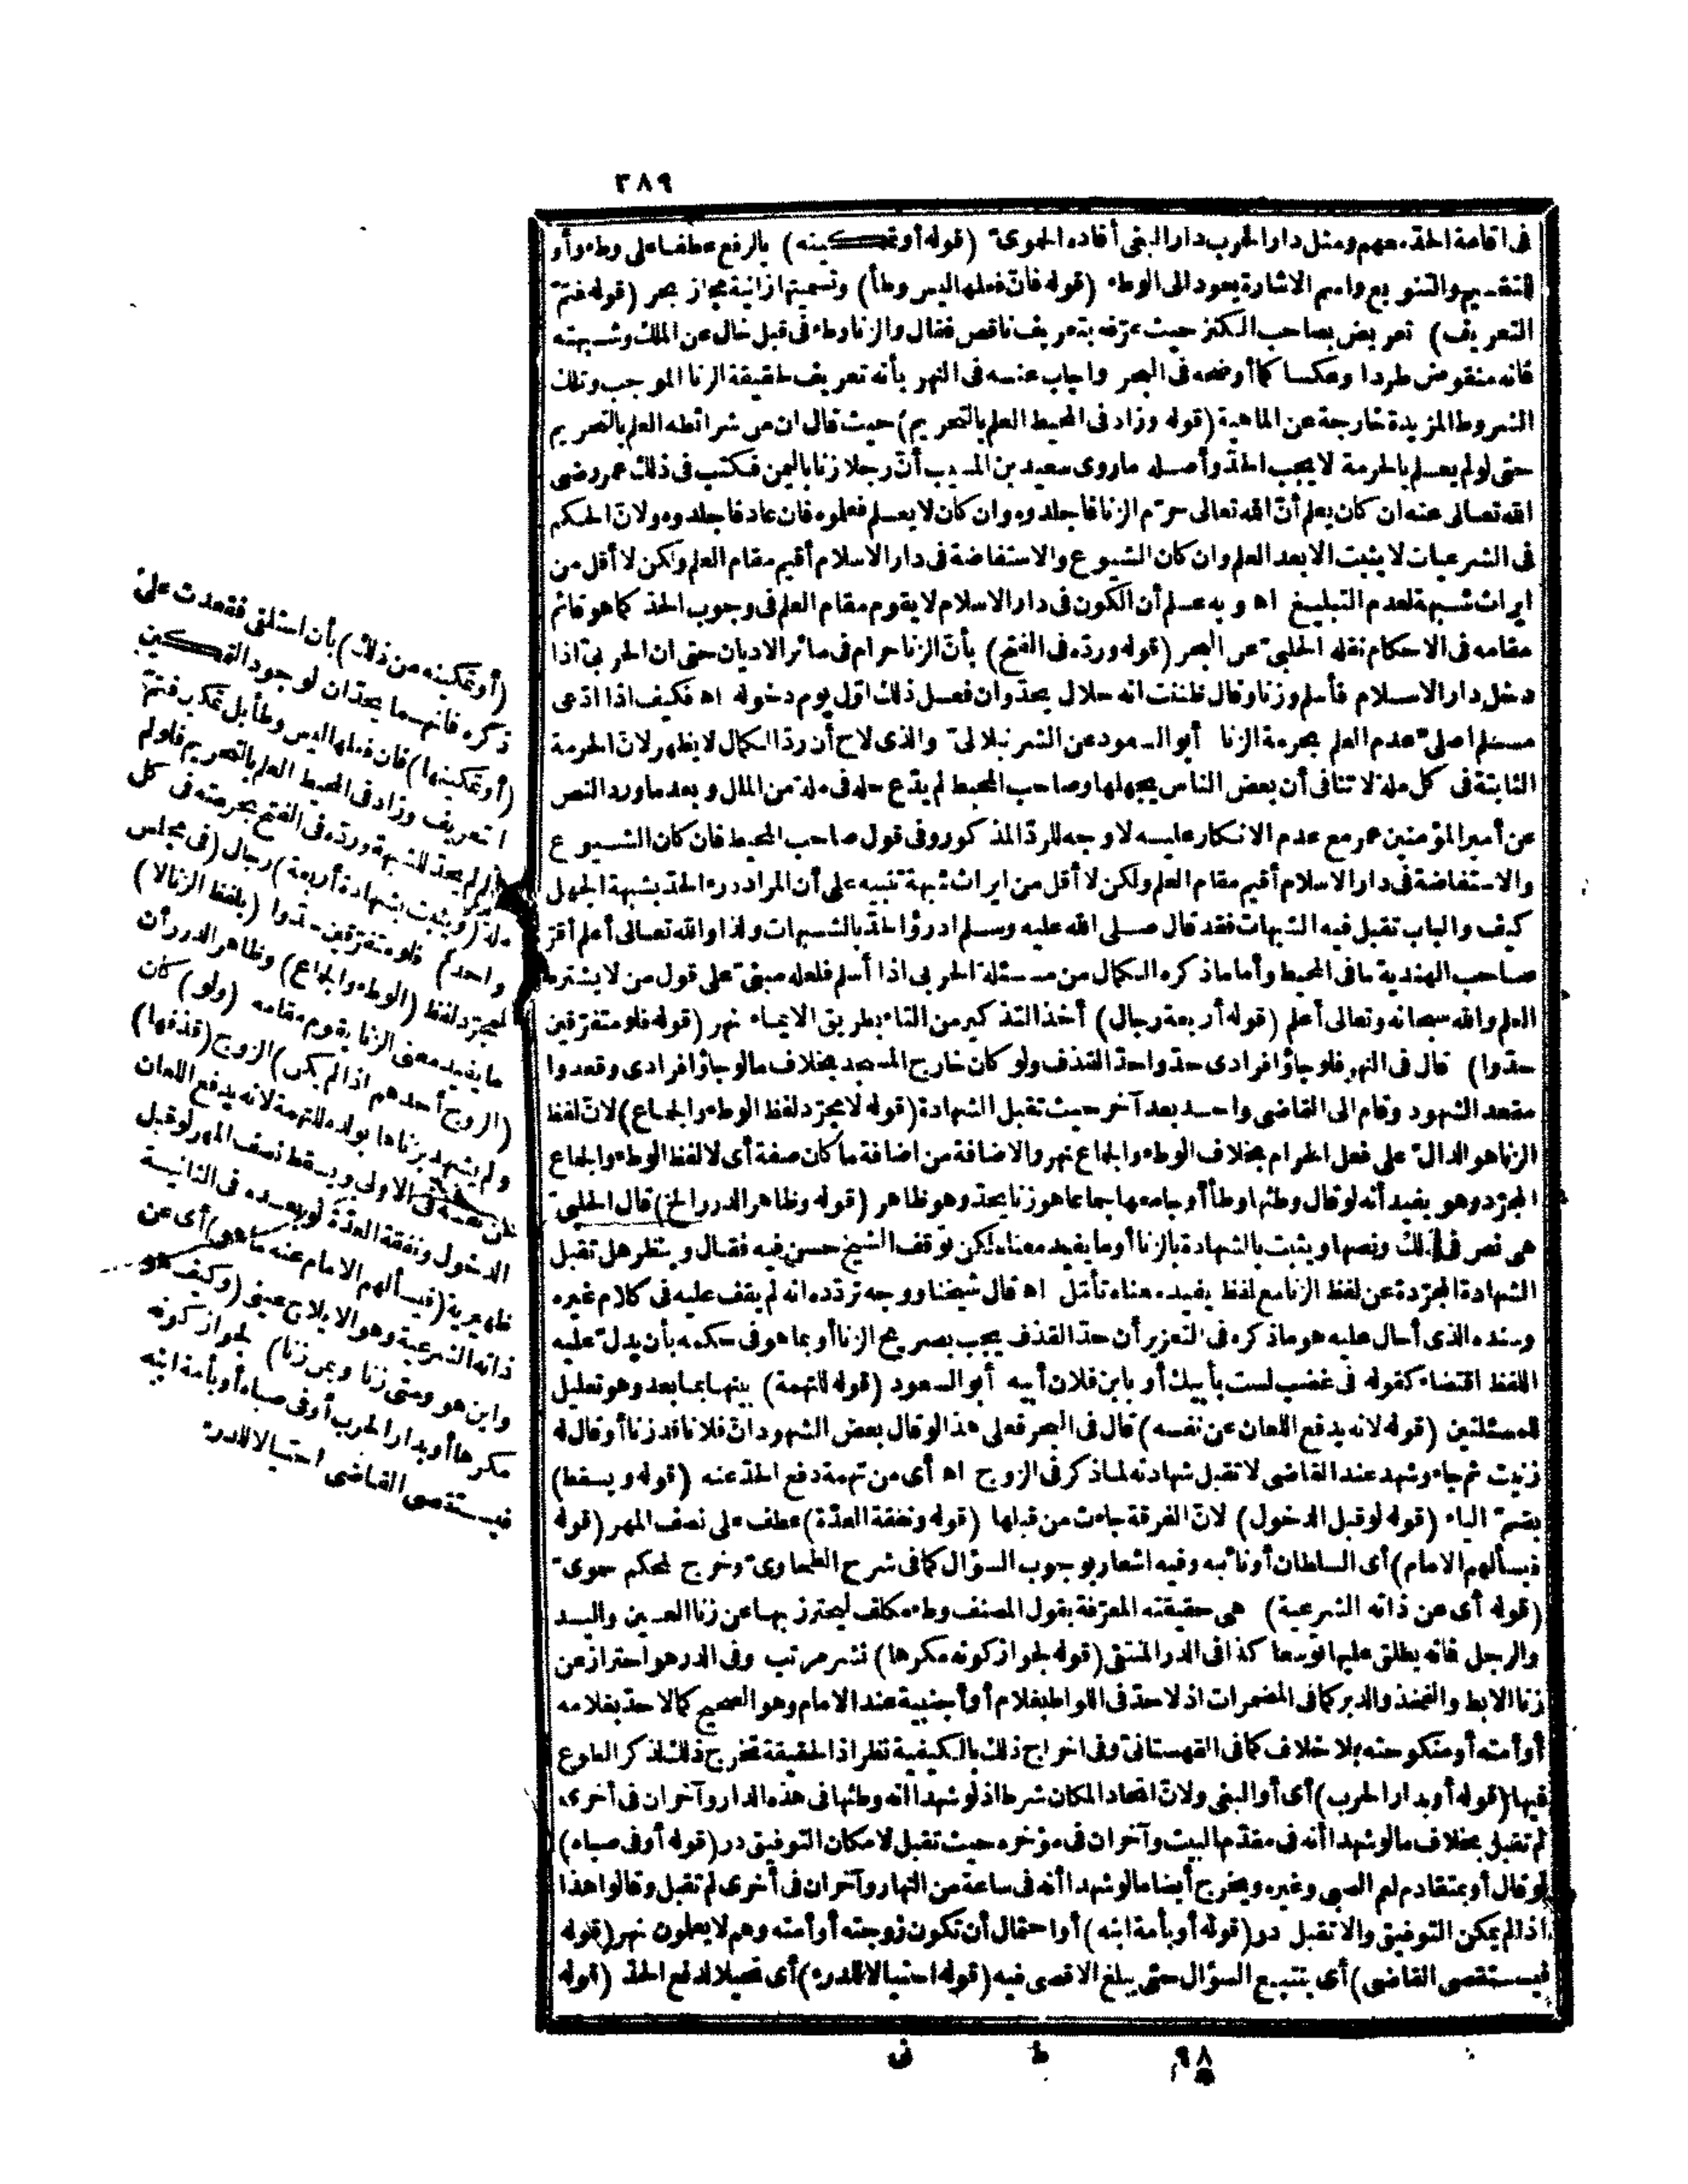 ٣٨٩
فى اقامة الحد معهم ومثل دار الحرب دار البغى أفاده الحموى (قوله أو تمكينه) بالرفع عطفا على وطء وأو
للتقسيم والتنويع واسم الاشارة يعود الى الوطء (قوله فان فعلها ليس وطأ) وتسميتها زانية مجاز بحر (قوله فتم
التعريف) تعريض بصاحب الكنز حيث عرّفه بتعريف ناقص فقال والزنا وطء فى قبل خال عن الملك وشبهته
فانه منقوض طردا وعكسا كما أوضحه فى البحر واجاب عنه فى النهر بأنه تعريف لحقيقة الزنا الموجب وتلك
الشروط المزيدة خارجة عن الماهية (قوله وزاد فى المحيط العلم بالتحريم) حيث قال ان من شرائطه العلم بالتحريم
حتى لو لم يعلم بالحرمة لا يجب الحدّ وأصله ماروى سعيد بن المسيب أنّ رجلا زنا باليمن فكتب فى ذلك عمر رضى
الله تعالى عنه ان كان يعلم أنّ الله تعالى حرّم الزنا فاجلدوه وان كان لا يعلم فعلموه فان عاد فاجلدوه ولانّ الحكم
فى الشرعيات لا يثبت الا بعد العلم وان كان الشيوع والاستفاضة فى دار الاسلام أقيم مقام العلم ولكن لا أقل من
ايراث شبهة لعدم التبليغ اه وبه علم أن الكون فى دار الاسلام لا يقوم مقام العلم فى وجوب الحدّ كما هو قائم
مقامه فى الاحكام نقله الحلبىّ عن البحر (قوله وردّه فى الفتح) بأنّ الزنا حرام فى سائر الاديان حتى ان الحربىّ اذا
دخل دار الاسلام فأسلم وزنا وقال ظننت انه حلال يحدّ وان فعل ذلك اوّل يوم دخوله اه فكيف اذا ادّعى
مسلم اصلىّ عدم العلم بحرمة الزنا أبو السعود عن الشرنبلالىّ والذى لاح أن ردّ الكمال لا يظهر لانّ الحرمة
الثابتة فى كل ملة لا تنافى أن بعض الناس يجهلها وصاحب المحيط لم يدّع حله فى ملة من الملل وبعد ماورد النص
عن أمير المؤمنين عمر مع عدم الانكار عليه لا وجه للردّ المذكور وفى قول صاحب المحيط فان كان الشيوع
والاستفاضة فى دار الاسلام أقيم مقام العلم ولكن لا أقل من ايراث شبهة تنبيه على أن المراد درء الحدّ بشبهة الجهل
كيف والباب تقبل فيه الشبهات فقد قال صلى الله عليه وسلم ادرؤا الحدّ بالشبهات ولذا والله تعالى أعلم أقرّ
صاحب الهندية ما فى المحيط وأما ما ذكره الكمال من مسئلة الحربى اذا أسلم فلعله مبنىّ على قول من لا يشترط
العلم والله سبحانه وتعالى أعلم (قوله أربعة رجال) أخذ التذكير من التاء بطريق الايماء نهر (قوله فلو متفرّقين
حدّوا) قال فى النهر فلو جاؤا فرادى حدّوا حدّ القذف ولو كان خارج المسجد بخلاف مالو جاؤا فرادى وقعدوا
مقعد الشهود وقام الى القاضى واحد بعد آخر حيث تقبل الشهادة (قوله لا مجرّد لفظ الوطء والجماع) لانّ لفظ
الزنا هو الدالّ على فعل الحرام بخلاف الوطء والجماع نهر والاضافة من اضافة ما كان صفة أى لا لفظ الوطء والجماع
المجرّد وهو يفيد أنه لو قال وطئها وطأ أو جامعها جماعا هو زنا يحدّ وهو ظاهر (قوله وظاهر الدرر الخ) قال الحلبىّ
هى نص فى ذلك ونصها ويثبت بالشهادة بالزنا أو ما يفيد معناه لكن توقف الشيخ حسن فيه فقال وينظر هل تقبل
الشهادة المجرّدة عن لفظ الزنا مع لفظ يفيد معناه تأمّل اه قال شيخنا ووجه تردّده انه لم يقف عليه فى كلام غيره
وسنده الذى أحال عليه هو ما ذكره فى التعزير أن حدّ القذف يجب بصريح الزنا أو بما هو فى حكمه بأن يدلّ عليه
اللفظ اقتضاء كقوله فى غضب لست بأبيك أو بابن فلان أبيه أبو السعود (قوله للتهمة) بينها بما بعد وهو تعليل
للمسئلتين (قوله لانه يدفع اللعان عن نفسه) قال فى البحر فعلى هذا لو قال بعض الشهود انّ فلانا قد زنا أو قال له
زنيت ثم جاء وشهد عند القاضى لا تقبل شهادته لما ذكر فى الزوج اه أى من تهمة دفع الحدّ عنه (قوله ويسقط)
بضمّ الياء (قوله لو قبل الدخول) لانّ الفرقة جاءت من قبلها (قوله ونفقة العدّة) عطف على نصف المهر (قوله
فيسألهم الامام) أى السلطان أو نائبه وفيه اشعار بوجوب السؤال كما فى شرح الطحاوىّ وخرج المحكم حموىّ
(قوله أى عن ذاته الشرعية) هى حقيقته المعرّفة بقول المصنف وطء مكلف ليحترز بها عن زنا العين واليد
والرجل فانه يطلق عليها توسعا كذا فى الدر المنتقى (قوله لجواز كونه مكرها) نشر مرتب وفى الدر هو احتراز عن
زنا الابط والفخذ والدبر كما فى المضمرات اذ لا حدّ فى اللواط بغلام أو أجنبية عند الامام وهو الصحيح كما لا حدّ بغلامه
أو أمته أو منكوحته بلا خلاف كما فى القهستانىّ وفى اخراج ذلك بالكيفية نظر اذ الحقيقة تخرج ذلك لذكر الطوع
فيها (قوله أو بدار الحرب) أى أو البغى ولانّ اتحاد المكان شرط اذ لو شهدا انه وطئها فى هذه الدار وآخران فى أخرى
لم تقبل بخلاف مالو شهدا أنه فى مقدّم البيت وآخران فى مؤخره حيث تقبل لامكان التوفيق در (قوله أو فى صباه)
لو قال أو بمتقادم لعم الصبى وغيره ويخرج أيضا مالو شهدا أنه فى ساعة من النهار وآخران فى أخرى لم تقبل وقالوا هذا
اذا لم يمكن التوفيق والا تقبل در (قوله أو بأمة ابنه) أو احتمال أن تكون زوجته أو أمته وهم لا يعلمون نهر (قوله
فيستقصى القاضى) أى يتتبع السؤال حتى يبلغ الاقصى فيه (قوله احتيالا للدرء) أى تحيلا لدفع الحدّ (قوله
(أو تمكينه من ذلك) بأن استلقى فقعدت على
ذكره فانهما يحدّان لوجود التمكين
(أو تمكينها) فان فعلها ليس وطأ بل تمكين فتمّ
التعريف وزاد فى المحيط العلم بالتحريم فلو لم
يعلم لم يحدّ للشبهة وردّه فى الفتح بحرمته فى كل
ملة (ويثبت بشهادة أربعة) رجال (فى مجلس
واحد) فلو متفرّقين حدّوا (بلفظ الزنا لا)
مجرّد لفظ (الوطء والجماع) وظاهر الدرر أن
ما يفيد معنى الزنا يقوم مقامه (ولو) كان
(الزوج أحدهم اذا لم يكن) الزوج (قذفها)
ولم يشهد بزناها بولده للتهمة لانه يدفع اللعان
عن نفسه فى الاولى ويسقط نصف المهر لو قبل
الدخول ونفقة العدّة لو بعده فى الثانية
ظهيرية (فيسألهم الامام عنه ما هو) أى عن
ذاته الشرعية وهو الايلاج عينى (وكيف هو
واين هو ومتى زنا وبمن زنا) لجواز كونه
مكرها أو بدار الحرب أو فى صباه أو بأمة ابنه
فيستقصى القاضى احتيالا للدرء
٩٨ ط نى